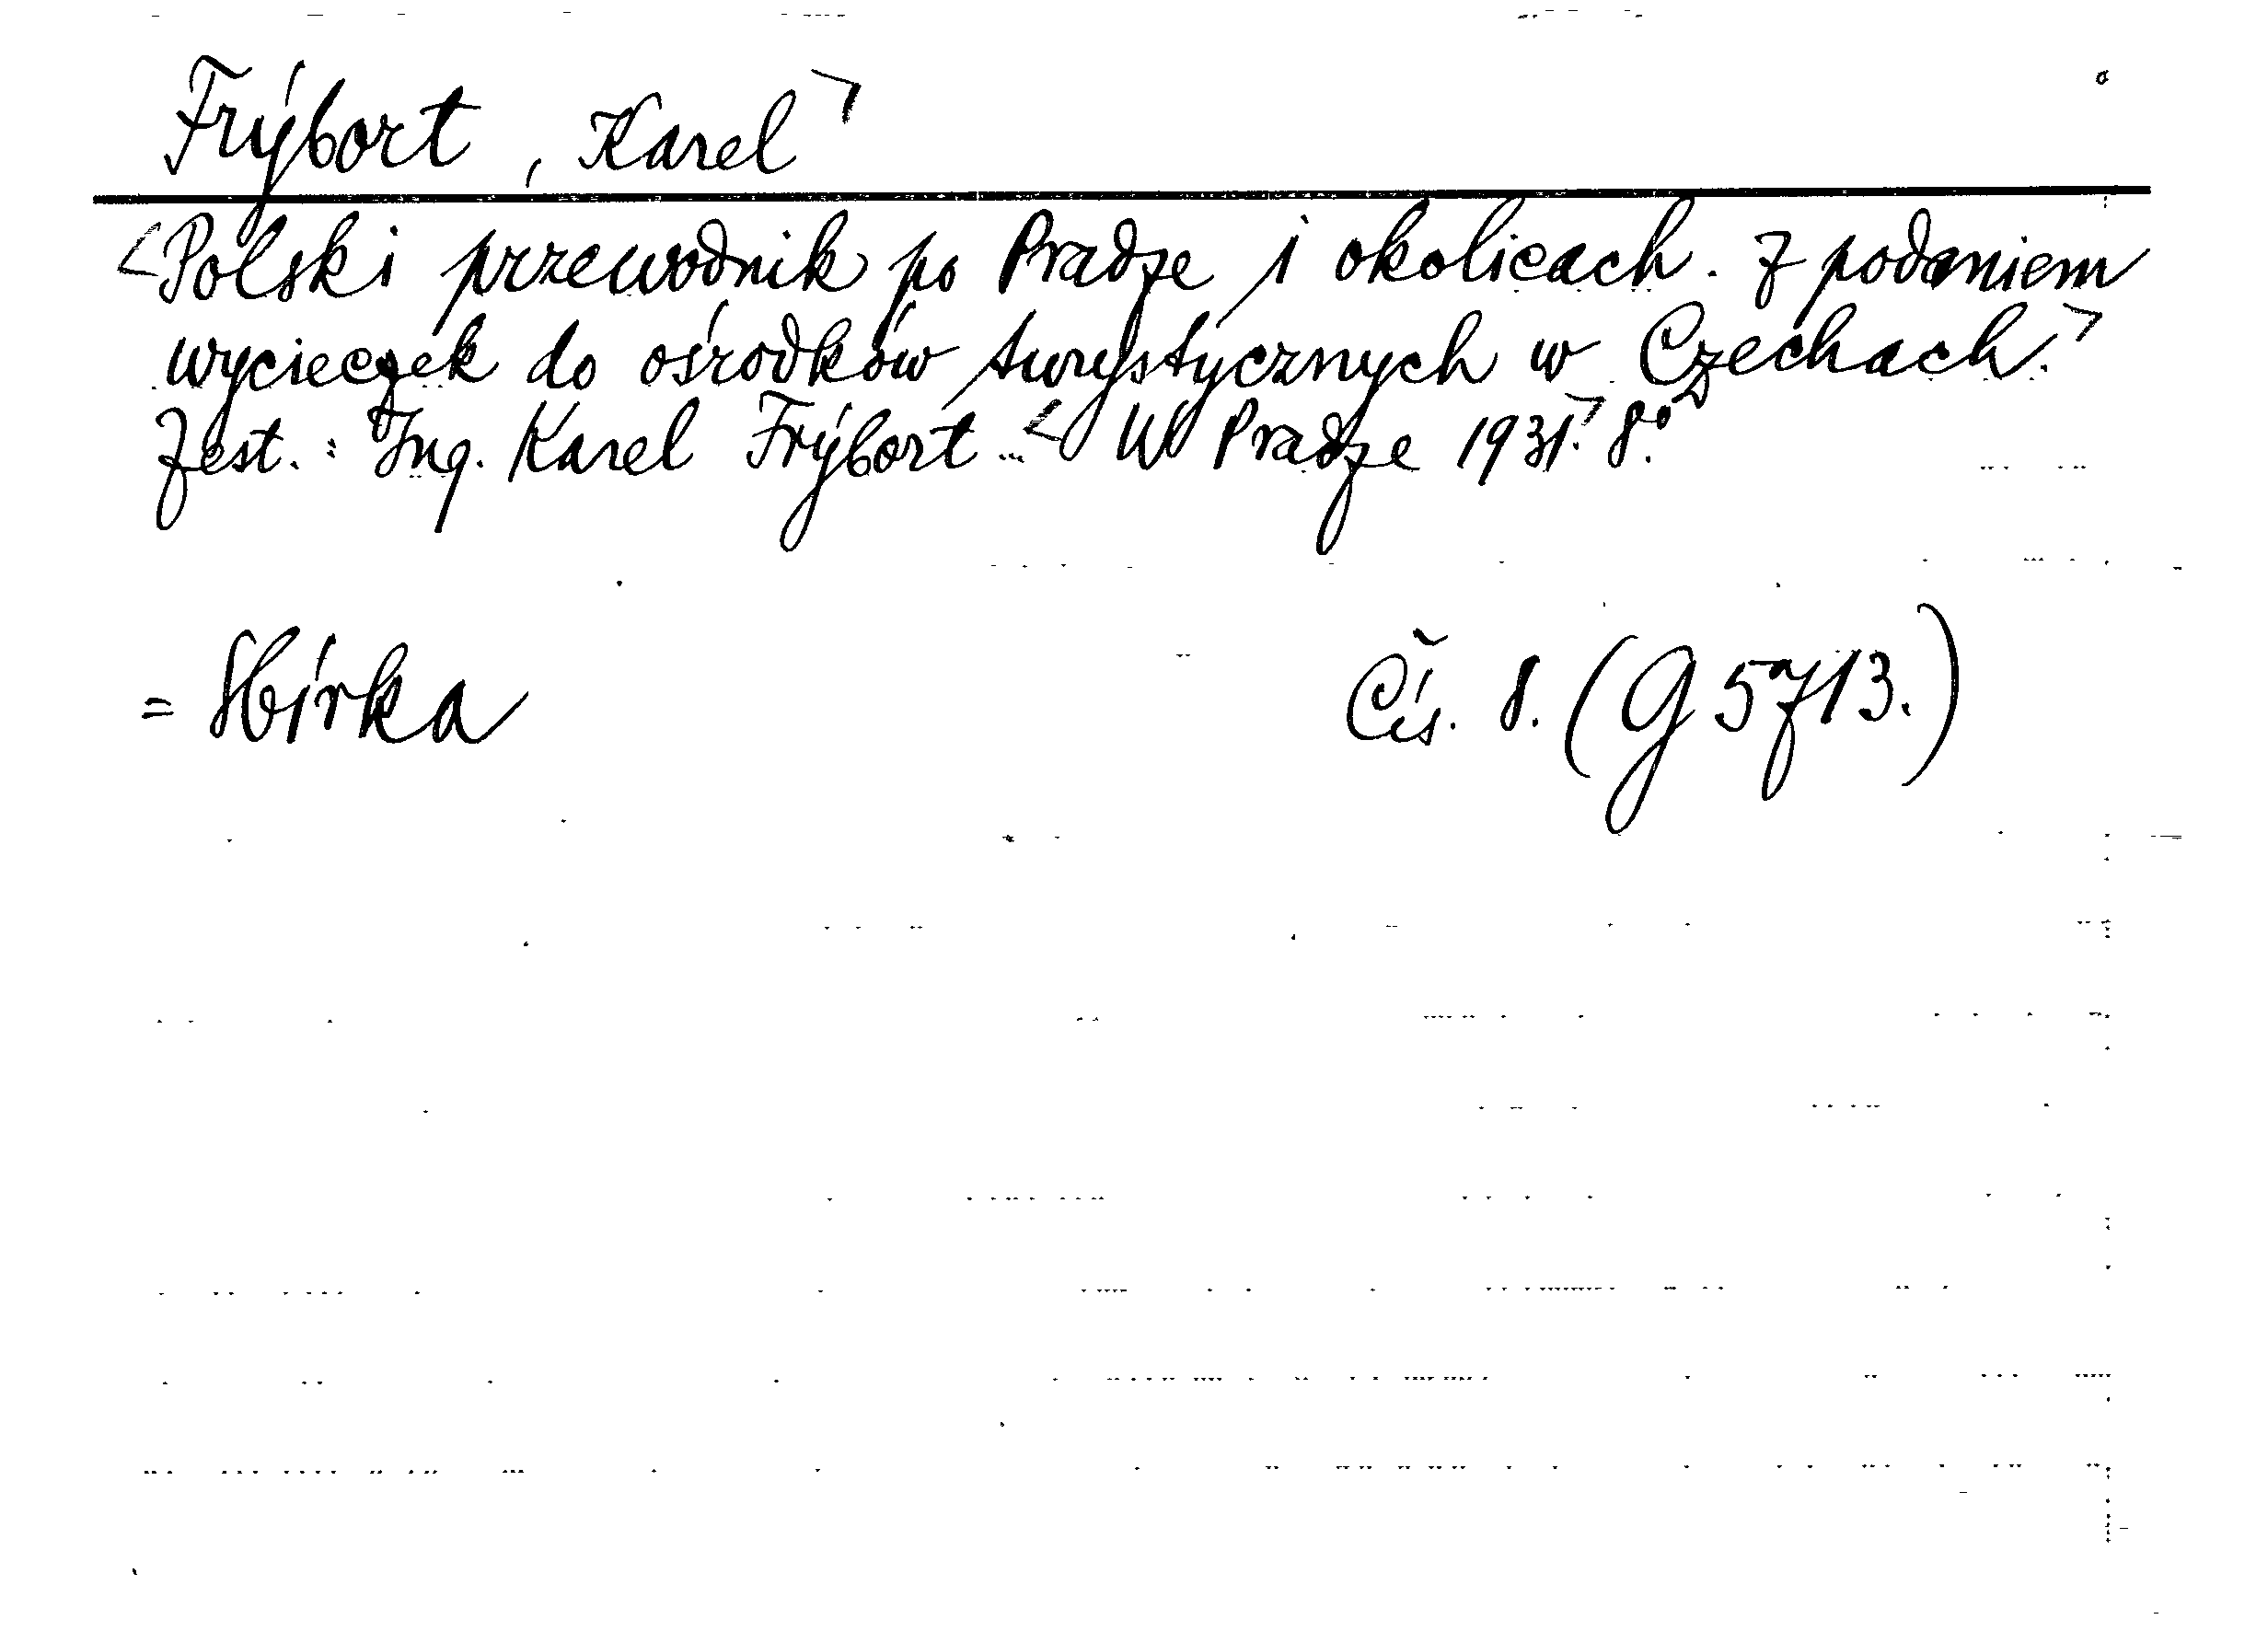 Frýbort, Karel
Polski przewodnik po Pradze i okolicach. Z podaniem
wycieczek do ośrodków turystycznych w Czechach.
Zest.: Ing. Karel Frýbort. W Pradze 1931. 8°.
= Sbírka Čís. 8. (G 5713.)